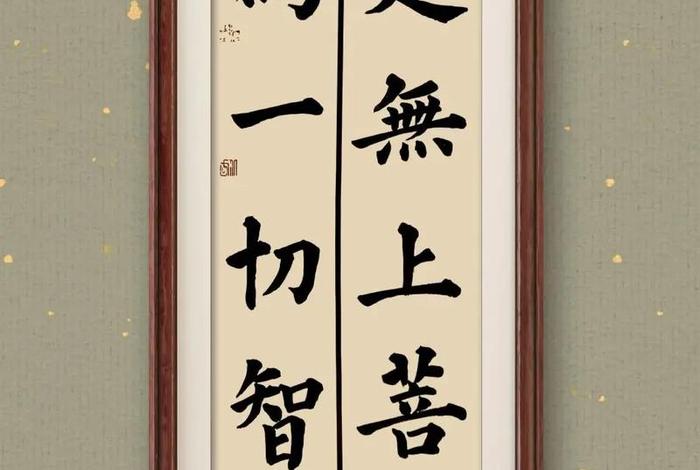 無上菩
一切智